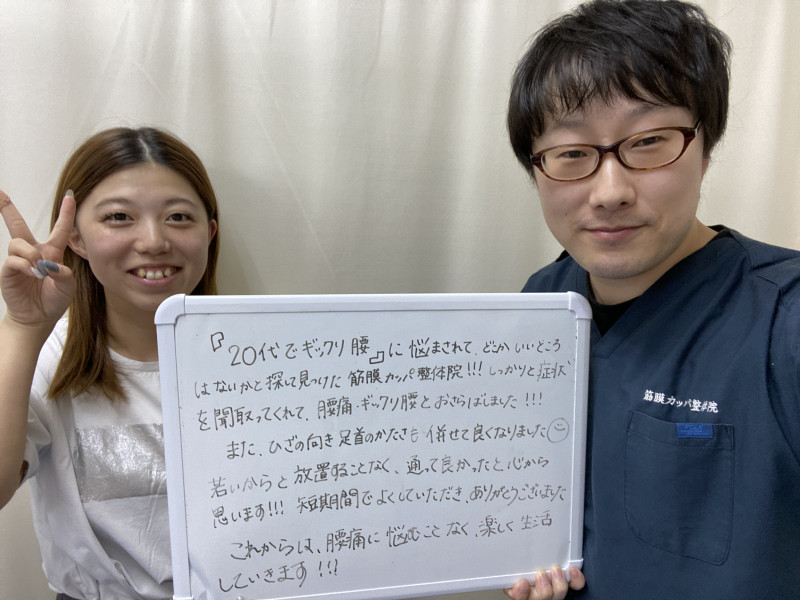 『20代でギックリ腰』に悩まされて、どこかいいところ
はないかと探して見つけた筋膜カッパ整体院!!! しっかりと症状
を聞取ってくれて、腰痛・ギックリ腰とおさらばしました!!!
また、ひざの向き足首のかたさも併せて良くなりました
若いからと放置することなく、通って良かったと心から
思います!!! 短期間でよくしていただき、ありがとうございました
これからは、腰痛に悩むことなく、楽しく生活
していきます!!!
筋膜カッパ整体院